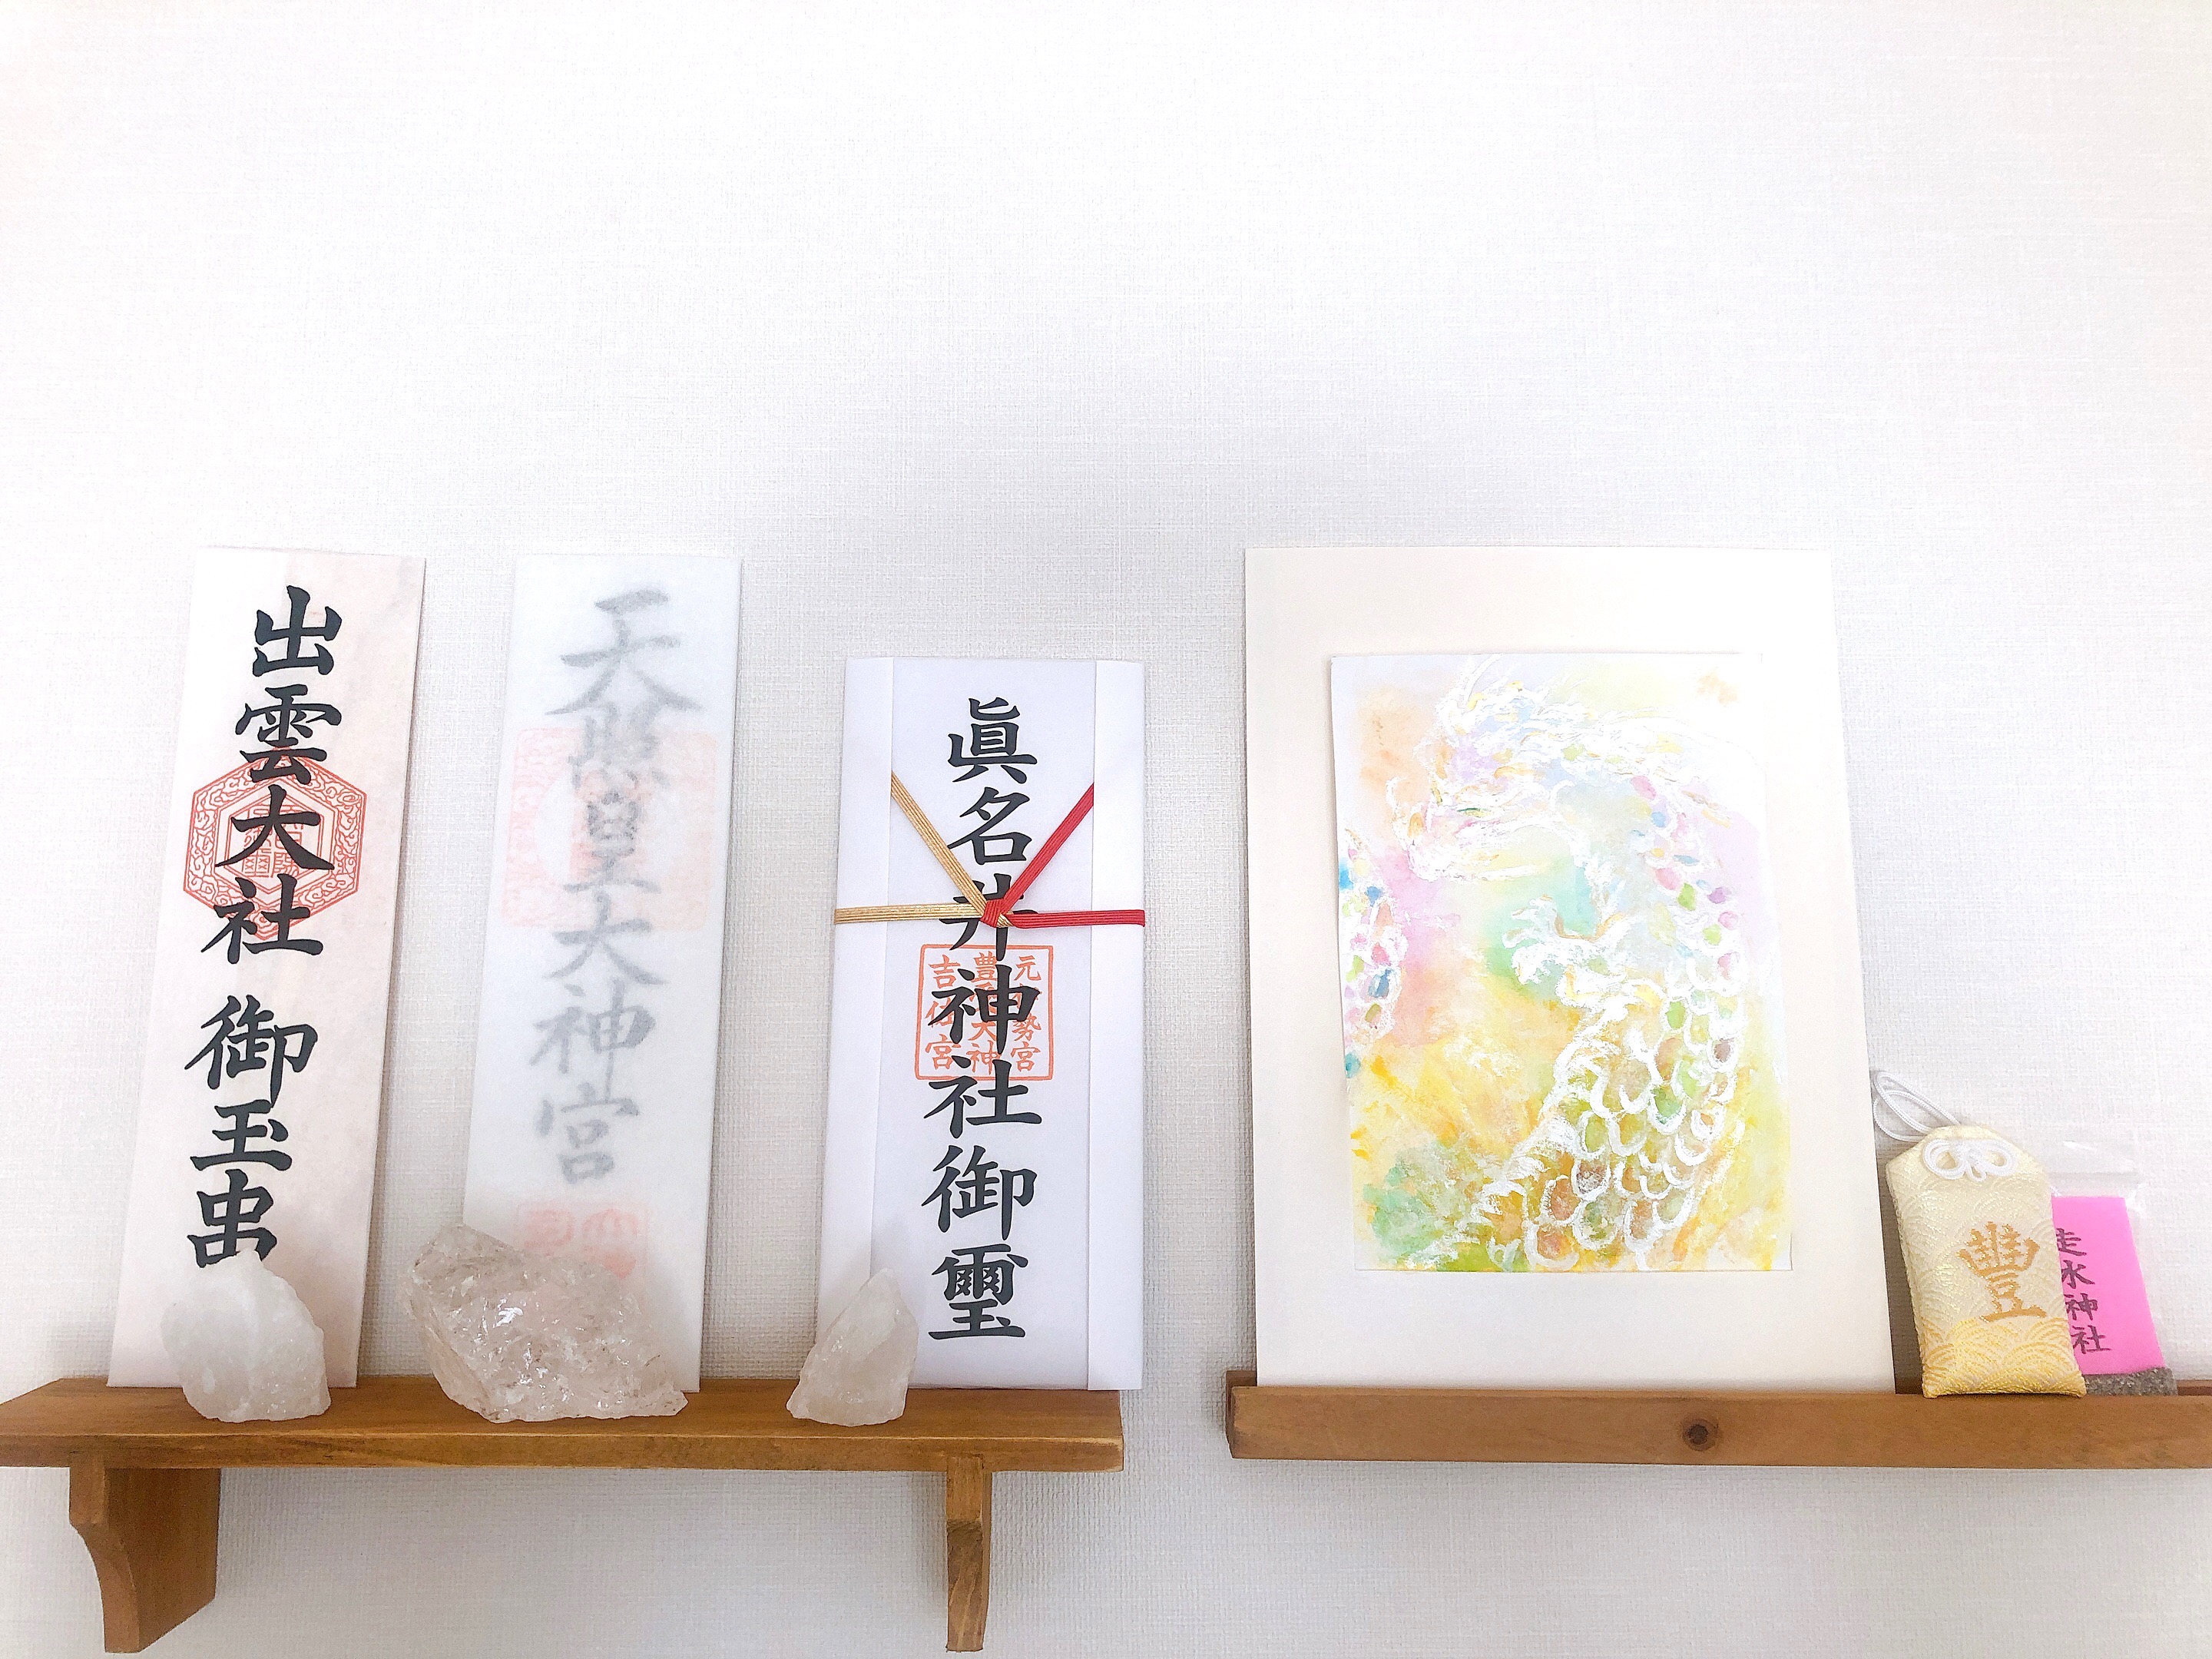 出雲大社 御玉串
天照皇大神宮
眞名井神社御璽
元伊勢宮
豊受大神
吉佐宮
豐
走水神社